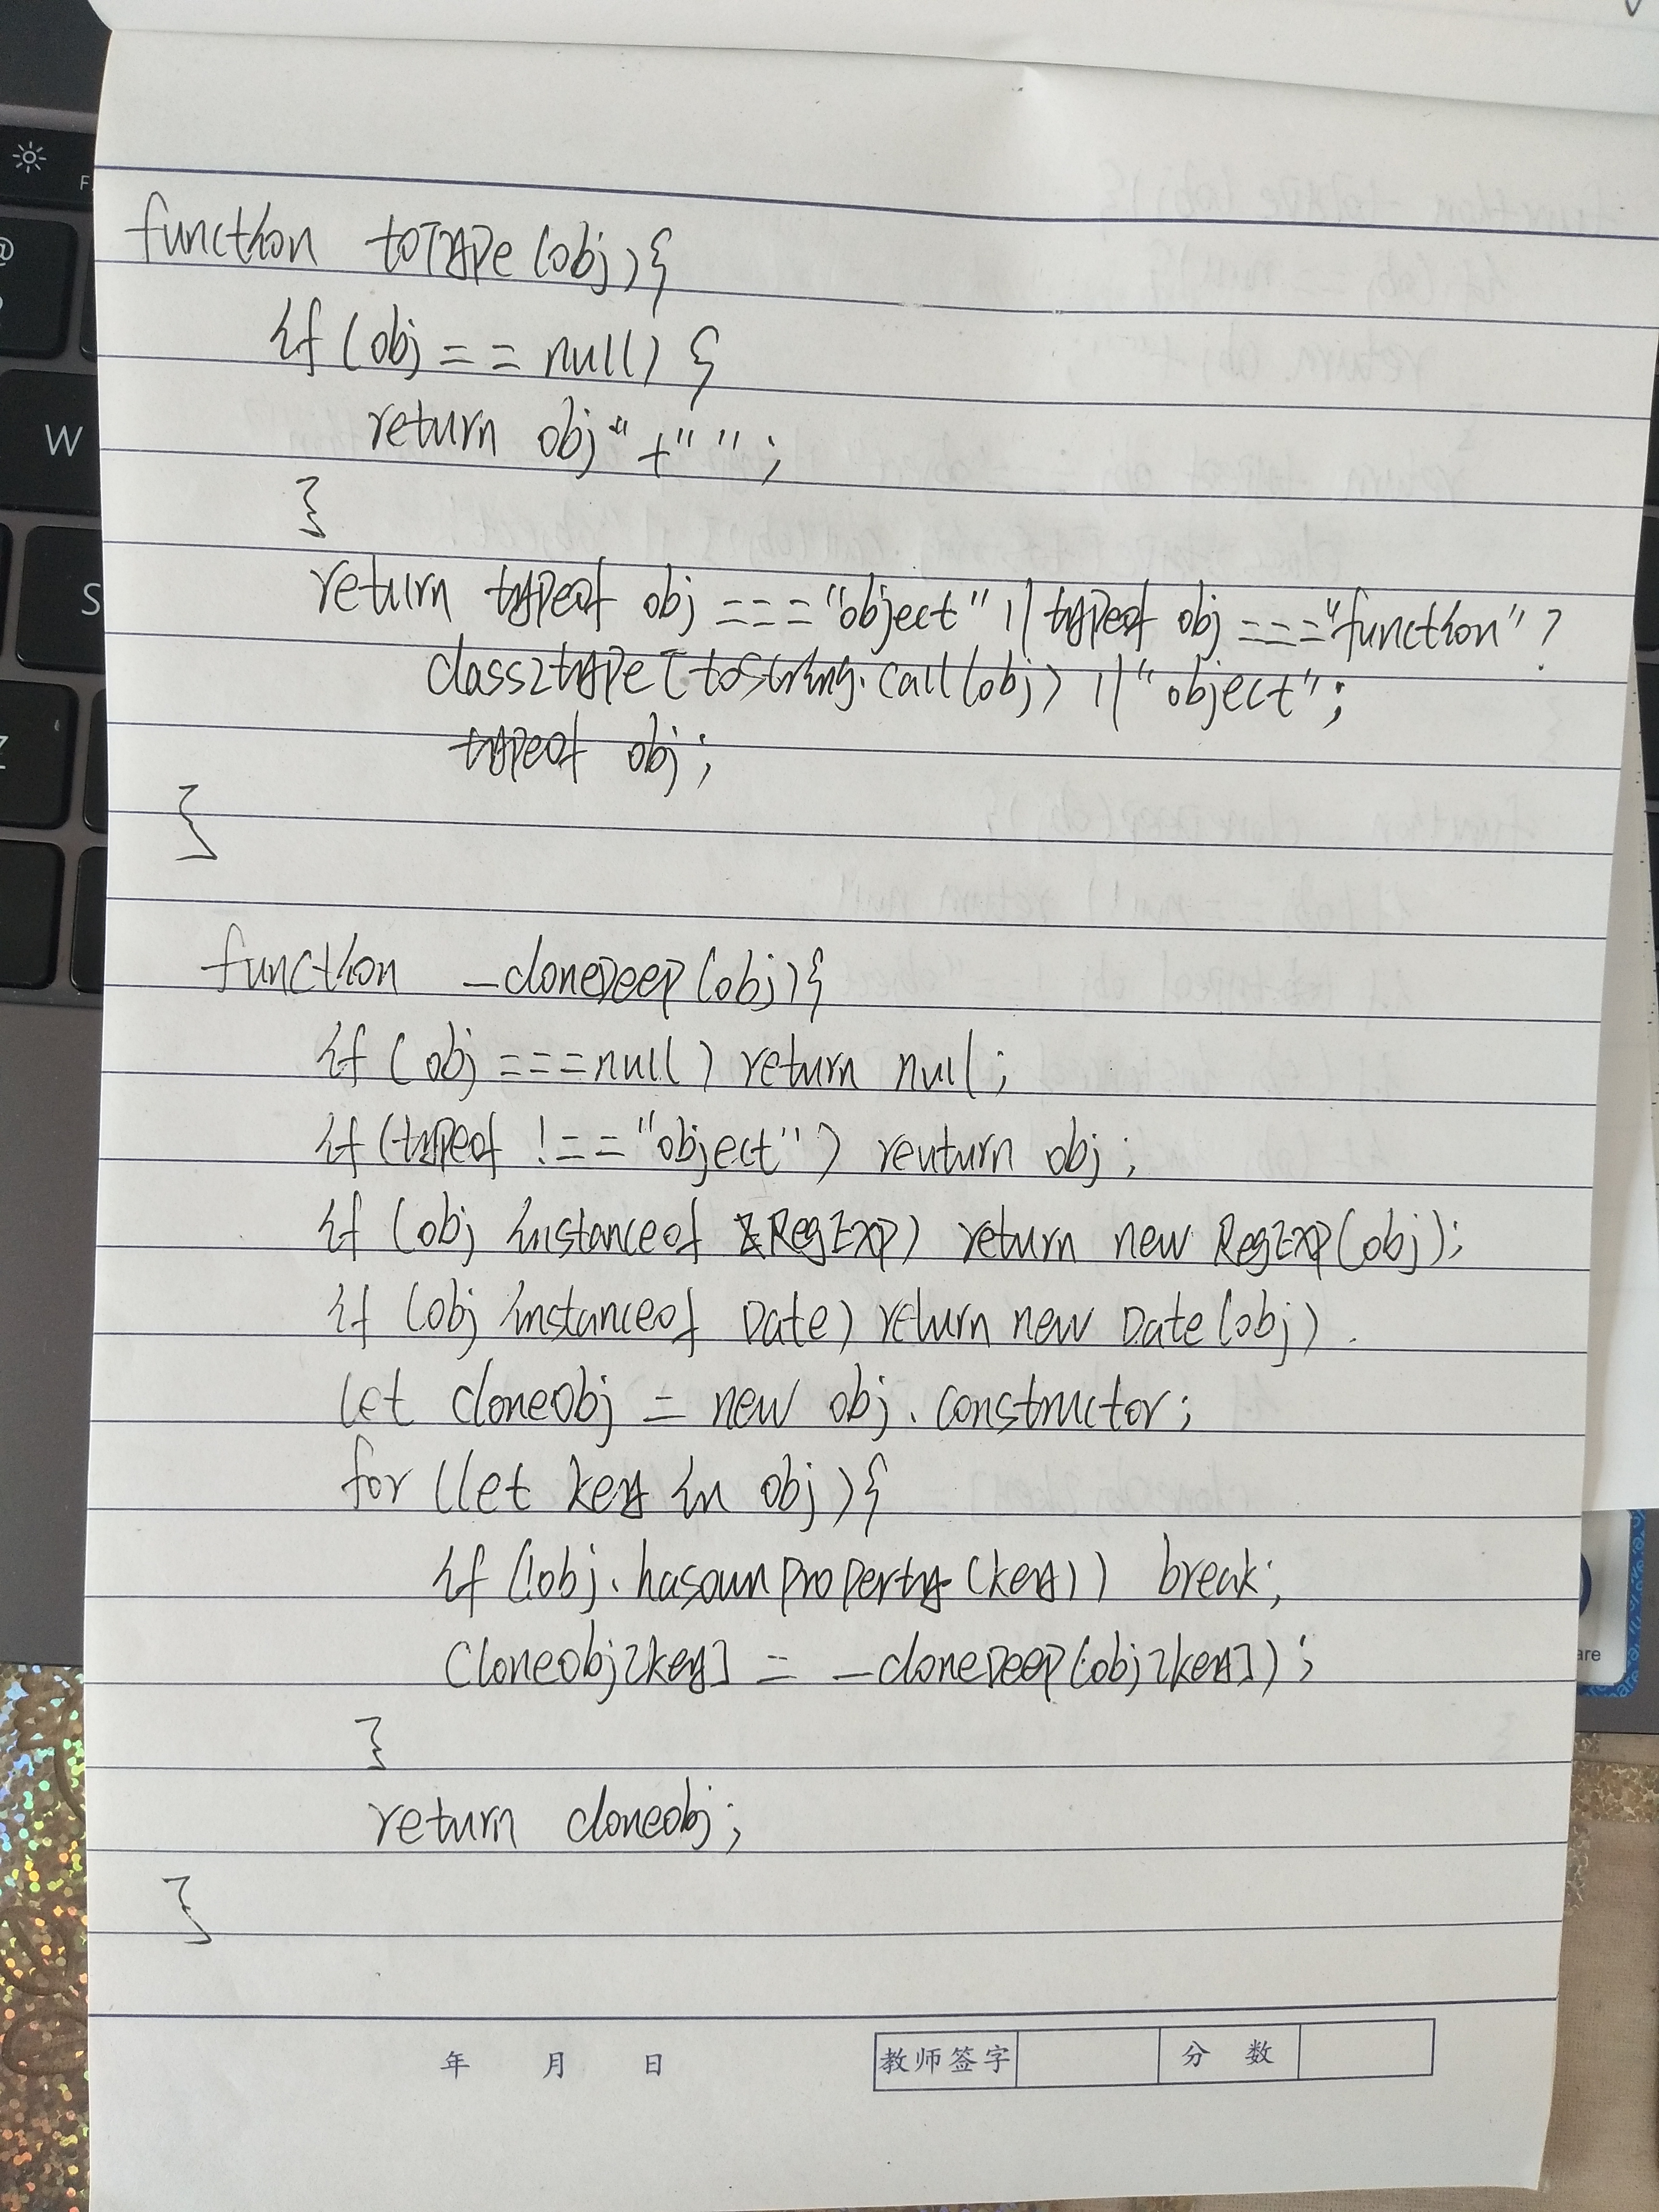 function toType(obj){
if(obj == null) {
return obj" +" ";
}
return typeof obj === "object" || typeof obj === "function" ?
class2type[toString.call(obj) || "object";
typeof obj;
}
function _cloneDeep(obj){
if(obj === null) return null;
if(typeof !== "object") reuturn obj;
if (obj instanceof RegExp) return new RegExp(obj);
if (obj instanceof Date) return new Date(obj).
let cloneObj = new obj.constructor;
for (let key in obj){
if(!obj.hasownproperty(key)) break;
cloneobj[key] = _cloneDeep(obj[key]);
}
return cloneobj;
}
年 月 日 教师签字 分数
W
S
Z
@
F
are